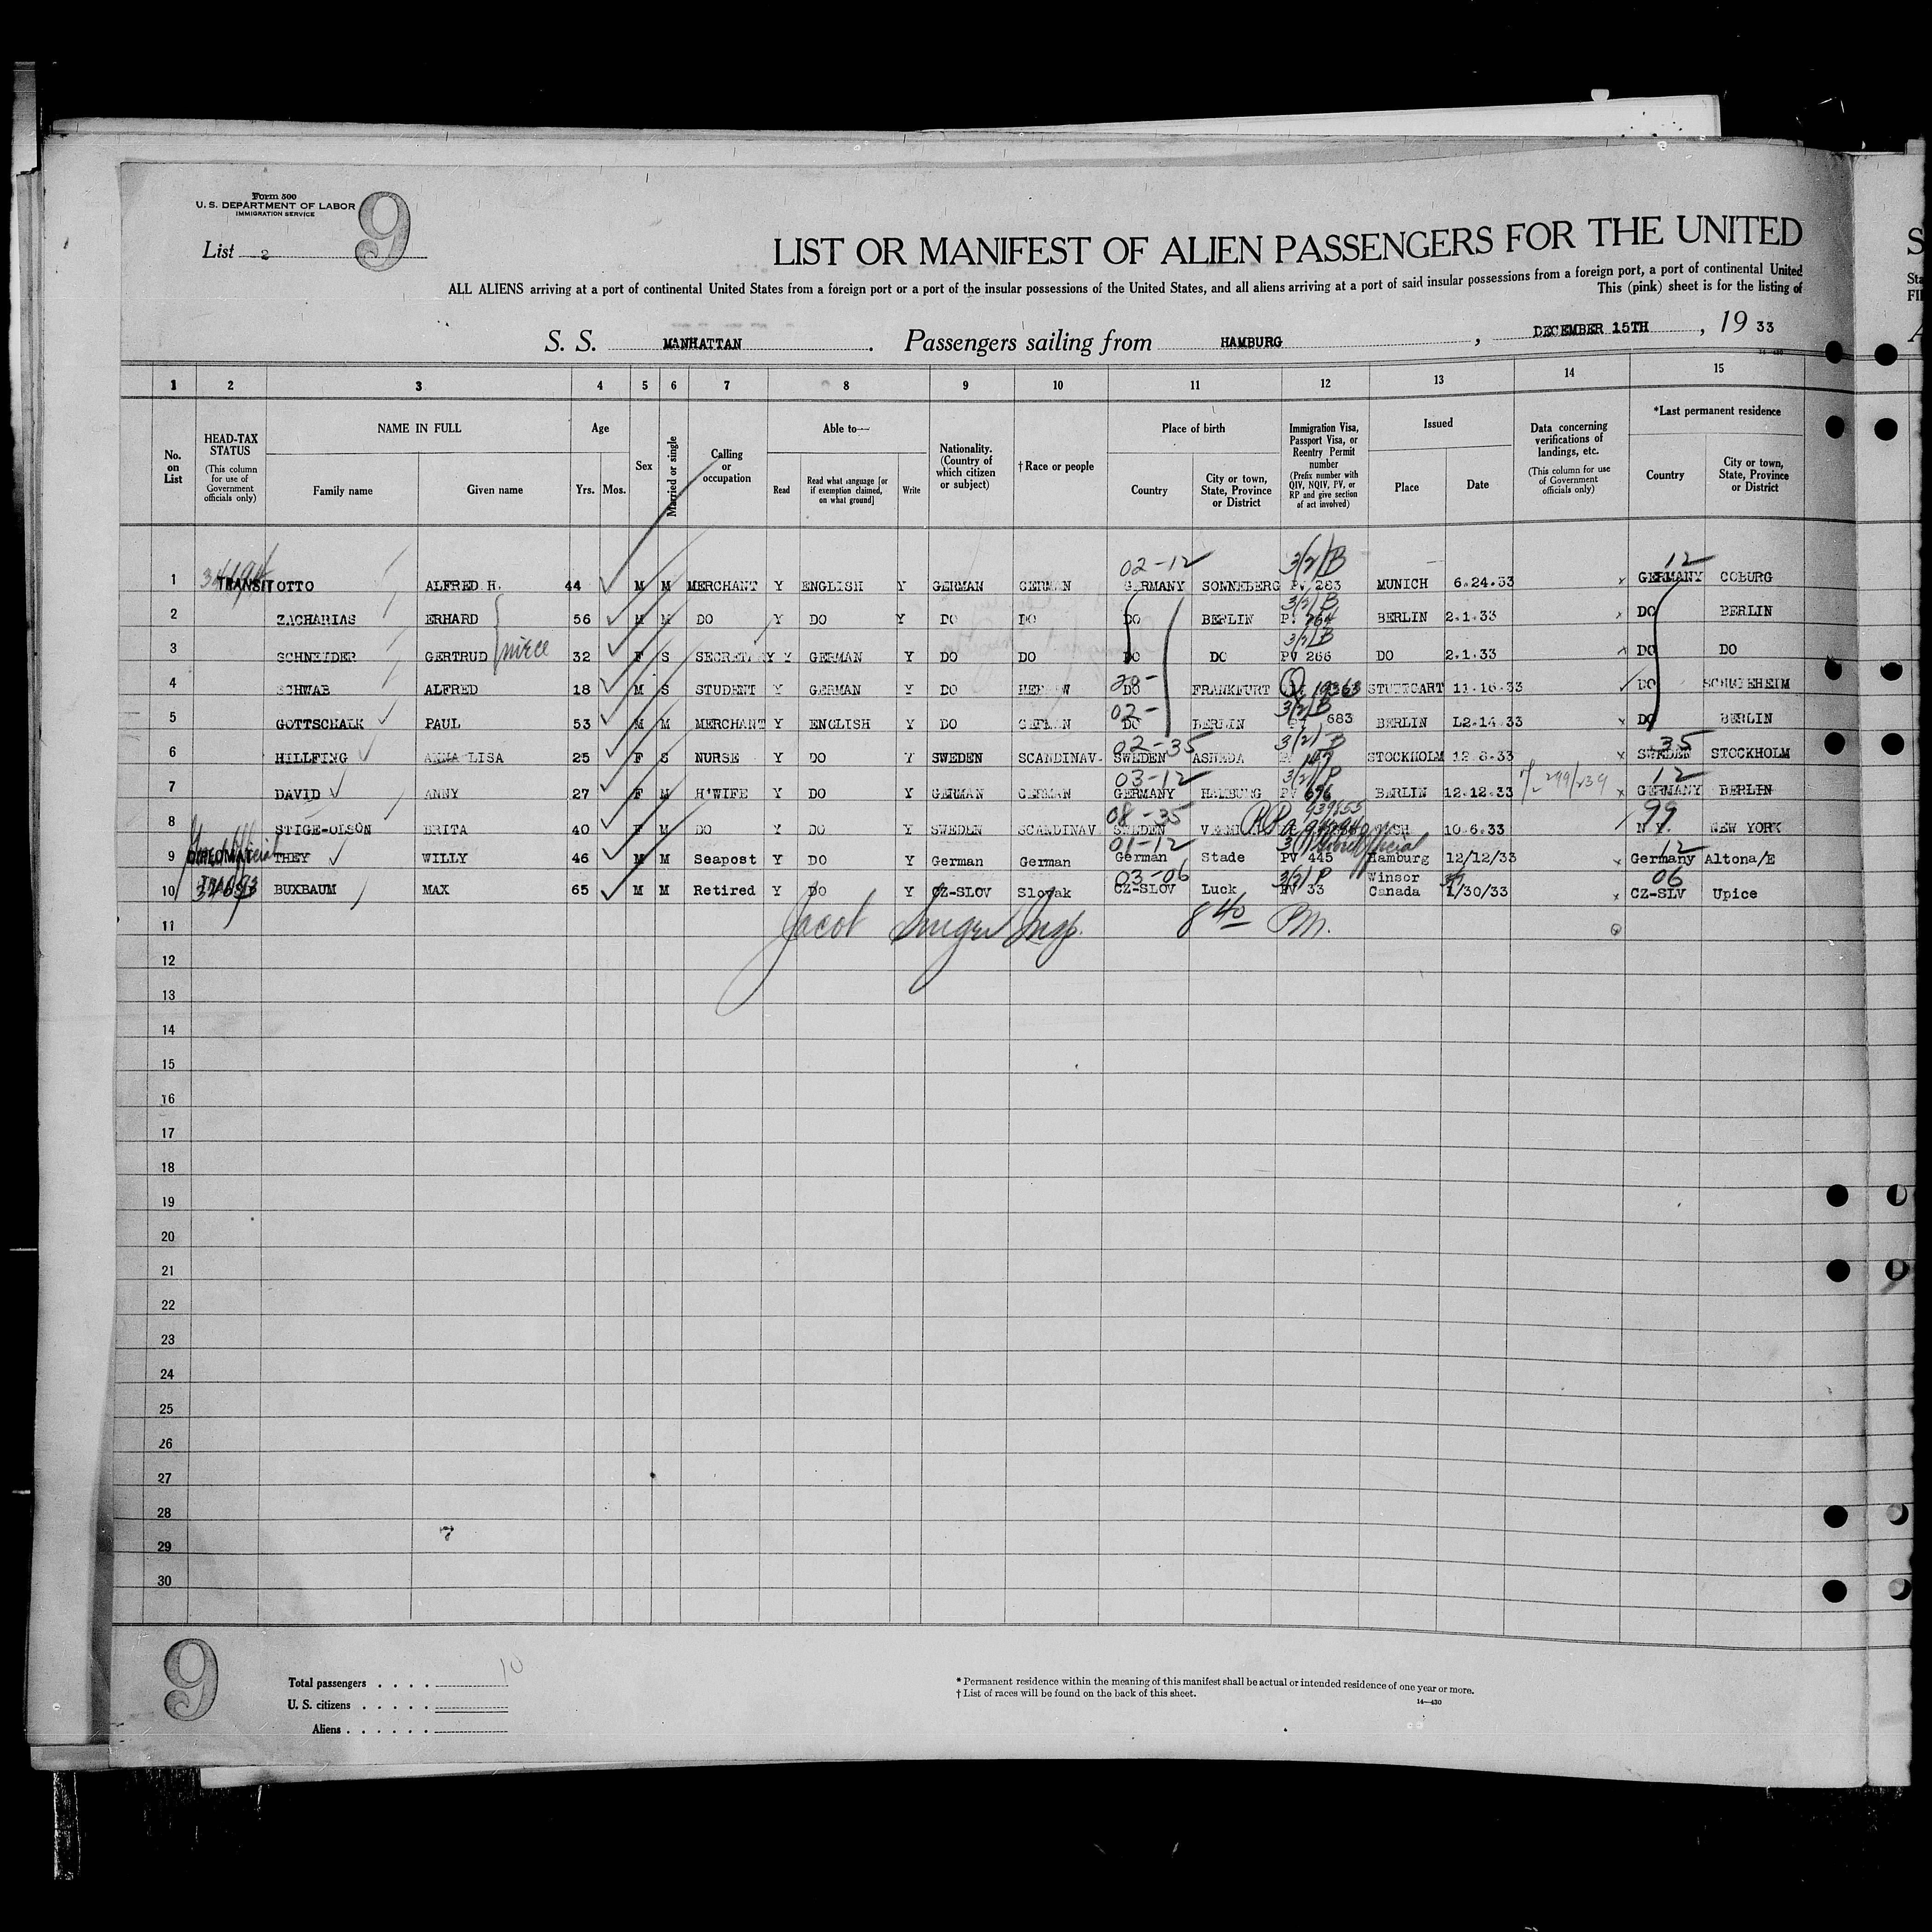 Form 500
U. S. DEPARTMENT OF LABOR
IMMIGRATION SERVICE
9
List 2
LIST OR MANIFEST OF ALIEN PASSENGERS FOR THE UNITED
ALL ALIENS arriving at a port of continental United States from a foreign port or a port of the insular possessions of the United States, and all aliens arriving at a port of said insular possessions from a foreign port, a port of continental United
This (pink) sheet is for the listing of
S. S. MANHATTAN . Passengers sailing from HAMBURG , DECEMBER 15TH , 19 33
1 2 3 4 5 6 7 8 9 10 11 12 13 14 15
No. on List
HEAD-TAX STATUS (This column for use of Government officials only)
NAME IN FULL Family name Given name
Age Yrs. Mos.
Sex
Married or single
Calling or occupation
Able to— Read Read what language [or if exemption claimed, on what ground] Write
Nationality. (Country of which citizen or subject)
†Race or people
Place of birth Country City or town, State, Province or District
Immigration Visa, Passport Visa, or Reentry Permit number (Prefix number with QIV, NQIV, PV, or RP and give section of act involved)
Issued Place Date
Data concerning verifications of landings, etc. (This column for use of Government officials only)
*Last permanent residence Country City or town, State, Province or District
02-12 3/2/B 12
1 TRANSIT OTTO ALFRED H. 44 M M MERCHANT Y ENGLISH Y GERMAN GERMAN GERMANY SONNEBERG PV 283 MUNICH 6.24.33 x GERMANY COBURG
3/2/B
2 ZACHARIAS ERHARD 56 M M DO Y DO Y DO DO DO BERLIN P. 264 BERLIN 2.1.33 x DO BERLIN
3/2/B
3 SCHNEIDER GERTRUD niece 32 F S SECRETARY Y GERMAN Y DO DO DO DO PV 266 DO 2.1.33 x DO DO
4 SCHWAB ALFRED 18 M S STUDENT Y GERMAN Y DO HEBREW DO FRANKFURT STUTTGART 11.16.33 DO SCHMIEHEIM
02- 3/2/B
5 GOTTSCHALK PAUL 53 M M MERCHANT Y ENGLISH Y DO GERMAN DO BERLIN 683 BERLIN 12.14.33 x DO BERLIN
02-35 3/2/B 35
6 HILLFING ANNA LISA 25 F S NURSE Y DO Y SWEDEN SCANDINAV. SWEDEN ASHEDA STOCKHOLM 12.6.33 x SWEDEN STOCKHOLM
03-12 3/2/P 12
7 DAVID ANNY 27 F M H'WIFE Y DO Y GERMAN GERMAN GERMANY HAMBURG PV 696 BERLIN 12.12.33 x GERMANY BERLIN
08-35 RP 99
8 STIGE-OLSON BRITA 40 F M DO Y DO Y SWEDEN SCANDINAV SWEDEN 10.6.33 N.Y. NEW YORK
01-12 12
9 DIPLOMAT THEY WILLY 46 M M Seapost Y DO Y German German German Stade PV 445 Hamburg 12/12/33 x Germany Altona/E
03-06 3/2/P Winsor 06
10 TRANSIT BUXBAUM MAX 65 M M Retired Y DO Y CZ-SLOV Slovak CZ-SLOV Luck PV 33 Canada 1/30/33 x CZ-SLV Upice
11 Jacob Singer Insp. 8 40 PM.
12
13
14
15
16
17
18
19
20
21
22
23
24
25
26
27
28
29
30
9
Total passengers . . . . 10
U. S. citizens . . . . .
Aliens . . . . . .
* Permanent residence within the meaning of this manifest shall be actual or intended residence of one year or more.
† List of races will be found on the back of this sheet.
14—430